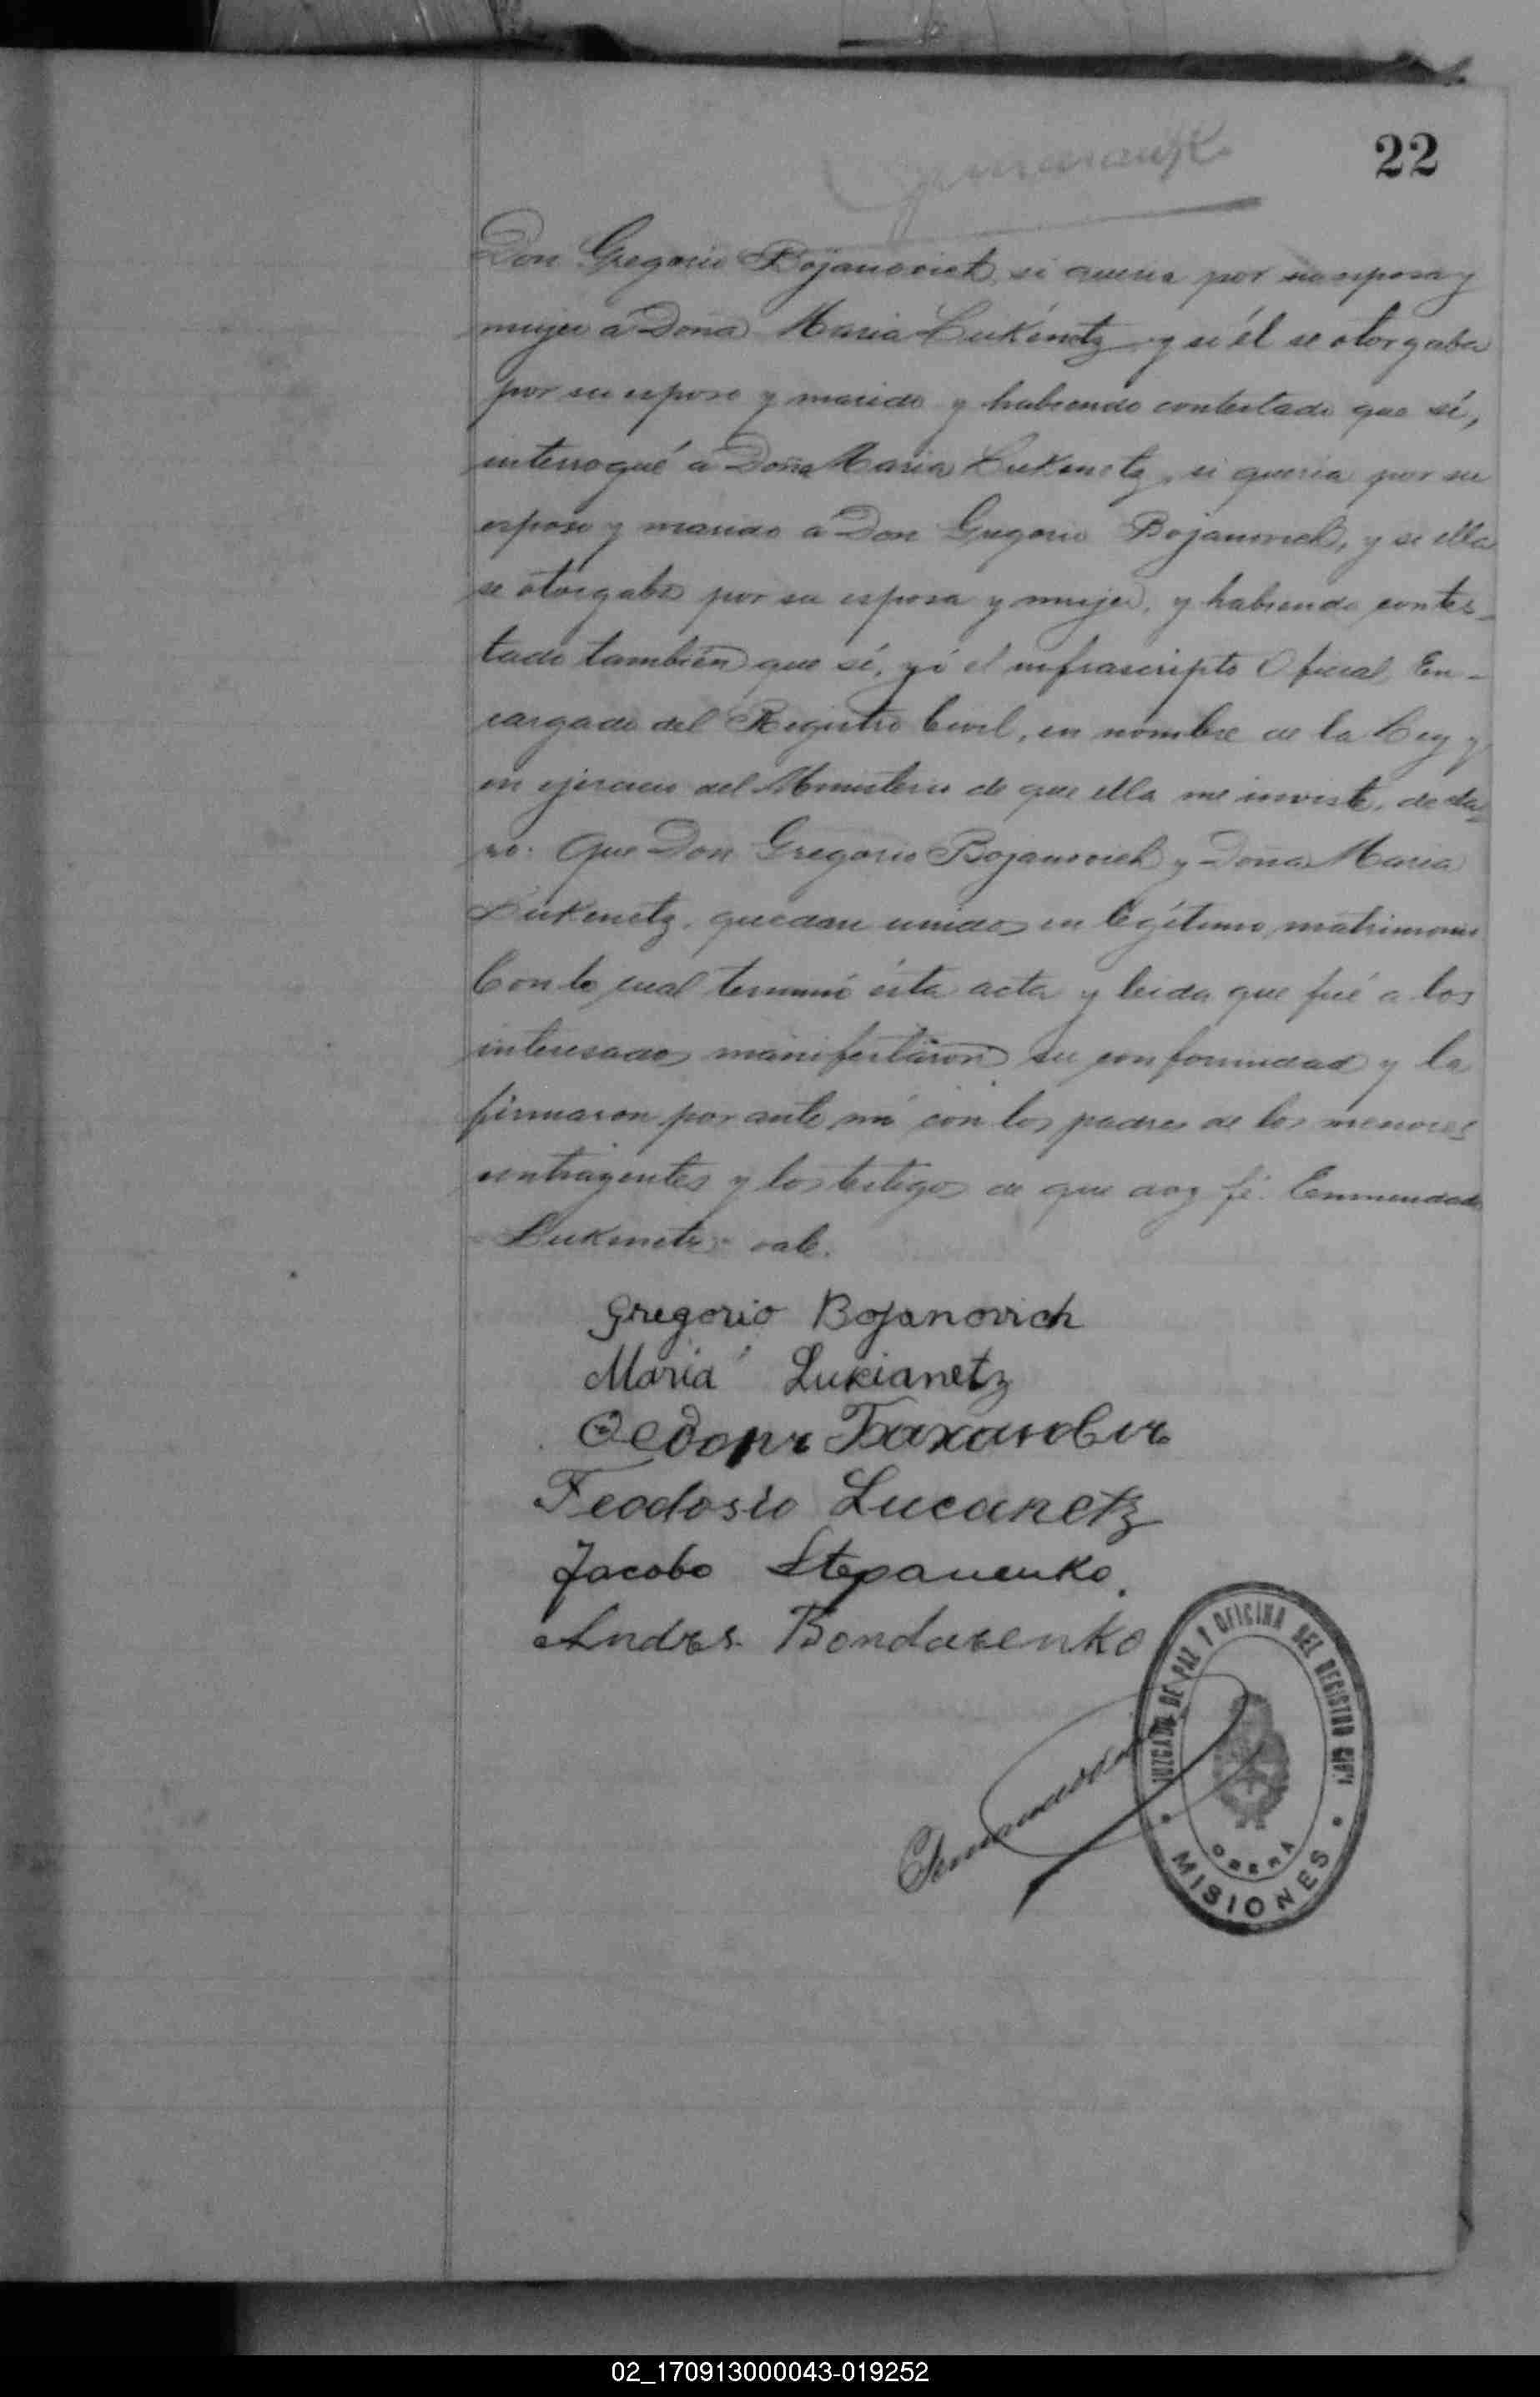 22
Don Gregorio Bojanovich, si queria por su esposa y
mujer á Doña Maria Lukenetz y si él se otorgaba
por su esposo y marido y habiendo contestado que sí,
interrogué á Doña Maria Lukenetz, si queria por su
esposo y marido á Don Gregorio Bojanovich, y si ella
se otorgaba por su esposa y mujer, y habiendo contes-
tado también que sí, yó el infrascripto Oficial En-
cargado del Registro Civil, en nombre de la Ley y
en ejercicio del Ministerio de que ella me inviste, decla-
ro: Que Don Gregorio Bojanovich y Doña Maria
Lukenetz, quedan unidos en legítimo matrimonio
Con lo cual terminó ésta acta y leida que fué a los
interesados manifestaron su conformidad y la
firmaron por ante mí con los padres de los menores
contrayentes y los testigos de que doy fé. Enmendado
Lukenetz - vale.
Gregorio Bojanovich
Maria Lukianetz
Ѳедоръ Бажановичъ
Feodosio Lucanetz
Jacobo Stepanenko.
Andres Bondarenko
JUZGADO DE PAZ Y OFICINA DEL REGISTRO CIVIL
OBERÁ
MISIONES
02_170913000043-019252